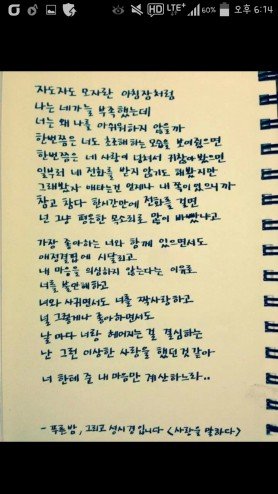 HD LTE 60% 오후 6:14
자도자도 모자란 아침잠처럼
나는 네가 늘 부족했는데
너는 왜 나를 아쉬워하지 않을까
한번쯤은 너도 초조해 하는 모습을 보여줬으면
한번쯤은 네 사랑이 넘쳐서 귀찮아 봤으면
일부러 네 전화를 받지 않기도 해봤지만
그래봤자 애타는건 언제나 내 쪽이었으니까
참고 참다 한시간만에 전화를 걸면
넌 그냥 평온한 목소리로 많이 바빴냐고
가장 좋아하는 너와 함께 있으면서도
애정결핍에 시달리고
내 마음을 의심하지 않는다는 이유로
너를 불안해하고
너와 사귀면서도 너를 짝사랑하고
널 그렇게나 좋아하면서도
날마다 너랑 헤어지는 걸 결심하는
난 그런 이상한 사랑을 했던것 같아
너 한테 줄 내 마음만 계산하느라..
- 푸른밤, 그리고 성시경입니다 <사랑을 말하다>